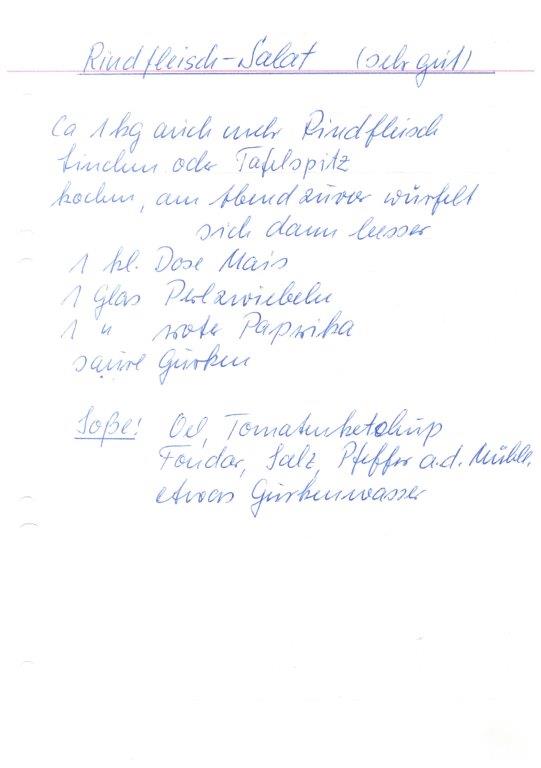 Rindfleisch-Salat (sehr gut)
Ca 1 kg auch mehr Rindfleisch
oder Tafelspitz
kochen, am Abend zuvor würfelt
sich dann besser
1 kl. Dose Mais
1 Glas Perlzwiebeln
1 " rote Paprika
saure Gurken
Soße! Oel, Tomatenketchup
Fondor, Salz, Pfeffer a.d. Mühle,
etwas Gurkenwasser